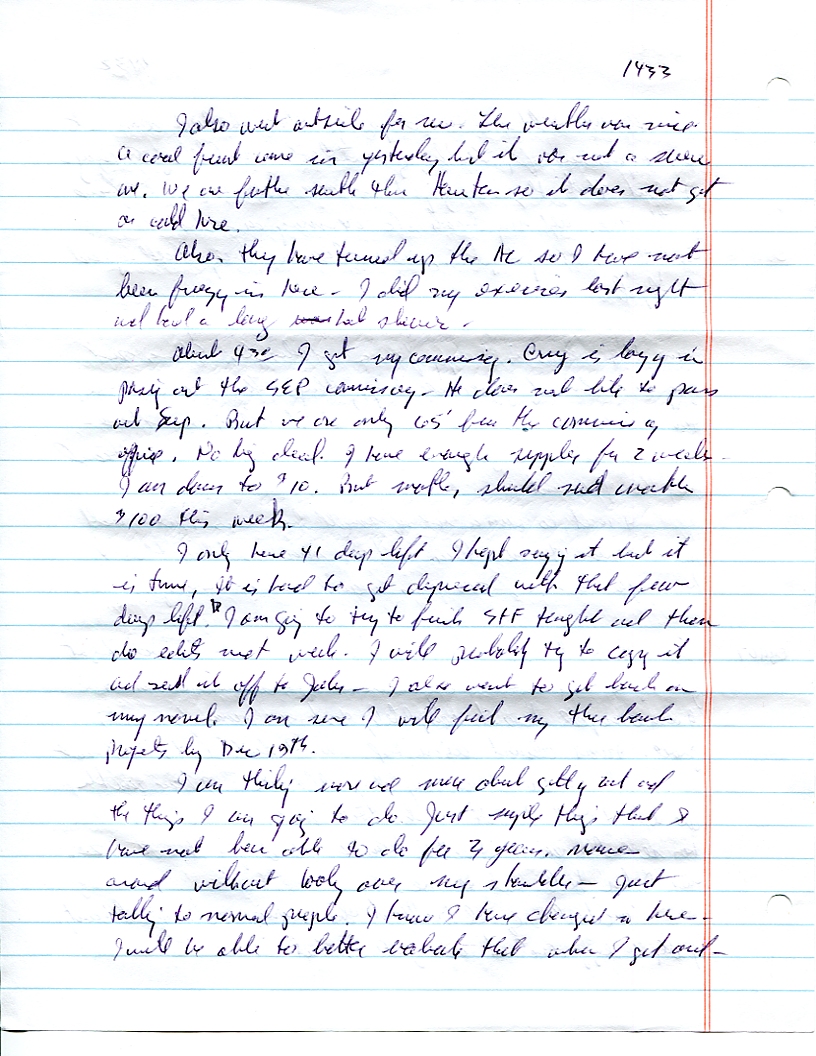 1433
I also went outside for rec. The weather was nice
a cool front came in yesterday but it was not a severe
one. We are further south than Houston so it does not get
as cold here.
Also, they have turned up the AC so I have not
been freezing in here - I did my exercises last night
and had a long hot shower.
About 4 30 I got my commissary. Craig is lazy in
passing out the SEP commissary - He does not like to pass
out Sep. But we are only 65' from the commissary
office. No big deal. I have enough supplies for 2 weeks -
I am down to $10. But mother, should send another
$100 this week.
I only have 41 days left I kept saying it but it
is true, it is hard to get depressed with that few
days left. I am going to try to finish STF tonight and then
do edits next week. I will probably try to copy it
and send it off to - I also want to get back on
my novel. I am sure I will finish my three book
projects by Dec 19th.
I am thinking more and more about getting out and
the things I am going to do Just simple things that I
have not been able to do for years. Move
around without looking over my shoulder - Just
talking to normal people. I know I have changed in here -
I will be able to better evaluate that when I get out -